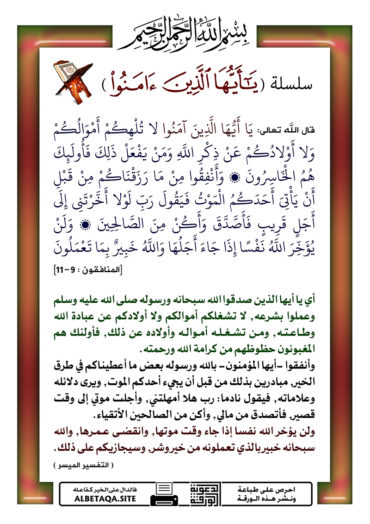 بسم الله الرحمن الرحيم
سلسلة ( يَـٰٓأَيُّهَا ٱلَّذِينَ ءَامَنُوا۟ )
قال الله تعالى: يَا أَيُّهَا الَّذِينَ آمَنُوا لَا تُلْهِكُمْ أَمْوَالُكُمْ
وَلَا أَوْلَادُكُمْ عَنْ ذِكْرِ اللَّهِ وَمَنْ يَفْعَلْ ذَلِكَ فَأُولَئِكَ
هُمُ الْخَاسِرُونَ ۞ وَأَنْفِقُوا مِنْ مَا رَزَقْنَاكُمْ مِنْ قَبْلِ
أَنْ يَأْتِيَ أَحَدَكُمُ الْمَوْتُ فَيَقُولَ رَبِّ لَوْلَا أَخَّرْتَنِي إِلَى
أَجَلٍ قَرِيبٍ فَأَصَّدَّقَ وَأَكُنْ مِنَ الصَّالِحِينَ ۞ وَلَنْ
يُؤَخِّرَ اللَّهُ نَفْسًا إِذَا جَاءَ أَجَلُهَا وَاللَّهُ خَبِيرٌ بِمَا تَعْمَلُونَ
[المنافقون : 9 – 11]
أي يا أيها الذين صدقوا الله سبحانه ورسوله صلى الله عليه وسلم
وعملوا بشرعه, لا تشغلكم أموالكم ولا أولادكم عن عبادة الله
وطاعته, ومن تشغله أمواله وأولاده عن ذلك, فأولئك هم
المغبونون حظوظهم من كرامة الله ورحمته.
وأنفقوا -أيها المؤمنون- بالله ورسوله بعض ما أعطيناكم في طرق
الخير, مبادرين بذلك من قبل أن يجيء أحدكم الموت, ويرى دلائله
وعلاماته, فيقول نادما: رب هلا أمهلتني, وأجلت موتي إلى وقت
قصير, فأتصدق من مالي, وأكن من الصالحين الأتقياء.
ولن يؤخر الله نفسا إذا جاء وقت موتها, وانقضى عمرها, والله
سبحانه خبير بالذي تعملونه من خير وشر, وسيجازيكم على ذلك.
( التفسير الميسر )
احرص على طباعة
ونشر هذه الورقة
فالدال على الخير كفاعله
ALBETAQA.SITE